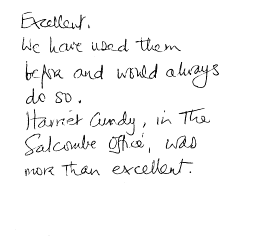 Excellent.
We have used them
before and would always
do so.
Harriet Cundy, in The
Salcombe Office, was
more than excellent.